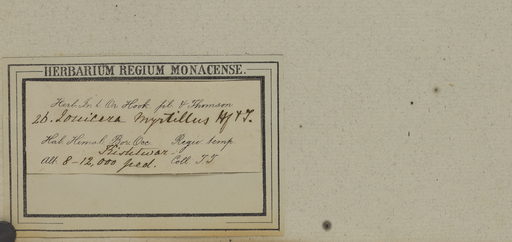 HERBARIUM REGIUM MONACENSE.
Herb. Ind. Or. Hook. fil. & Thomson
26. Lonicera Myrtillus Hf & T.
Hab. Himal. Bor. Occ. Regio temp.
Kishtwar
Alt. 8-12,000 ped. Coll. T.T.